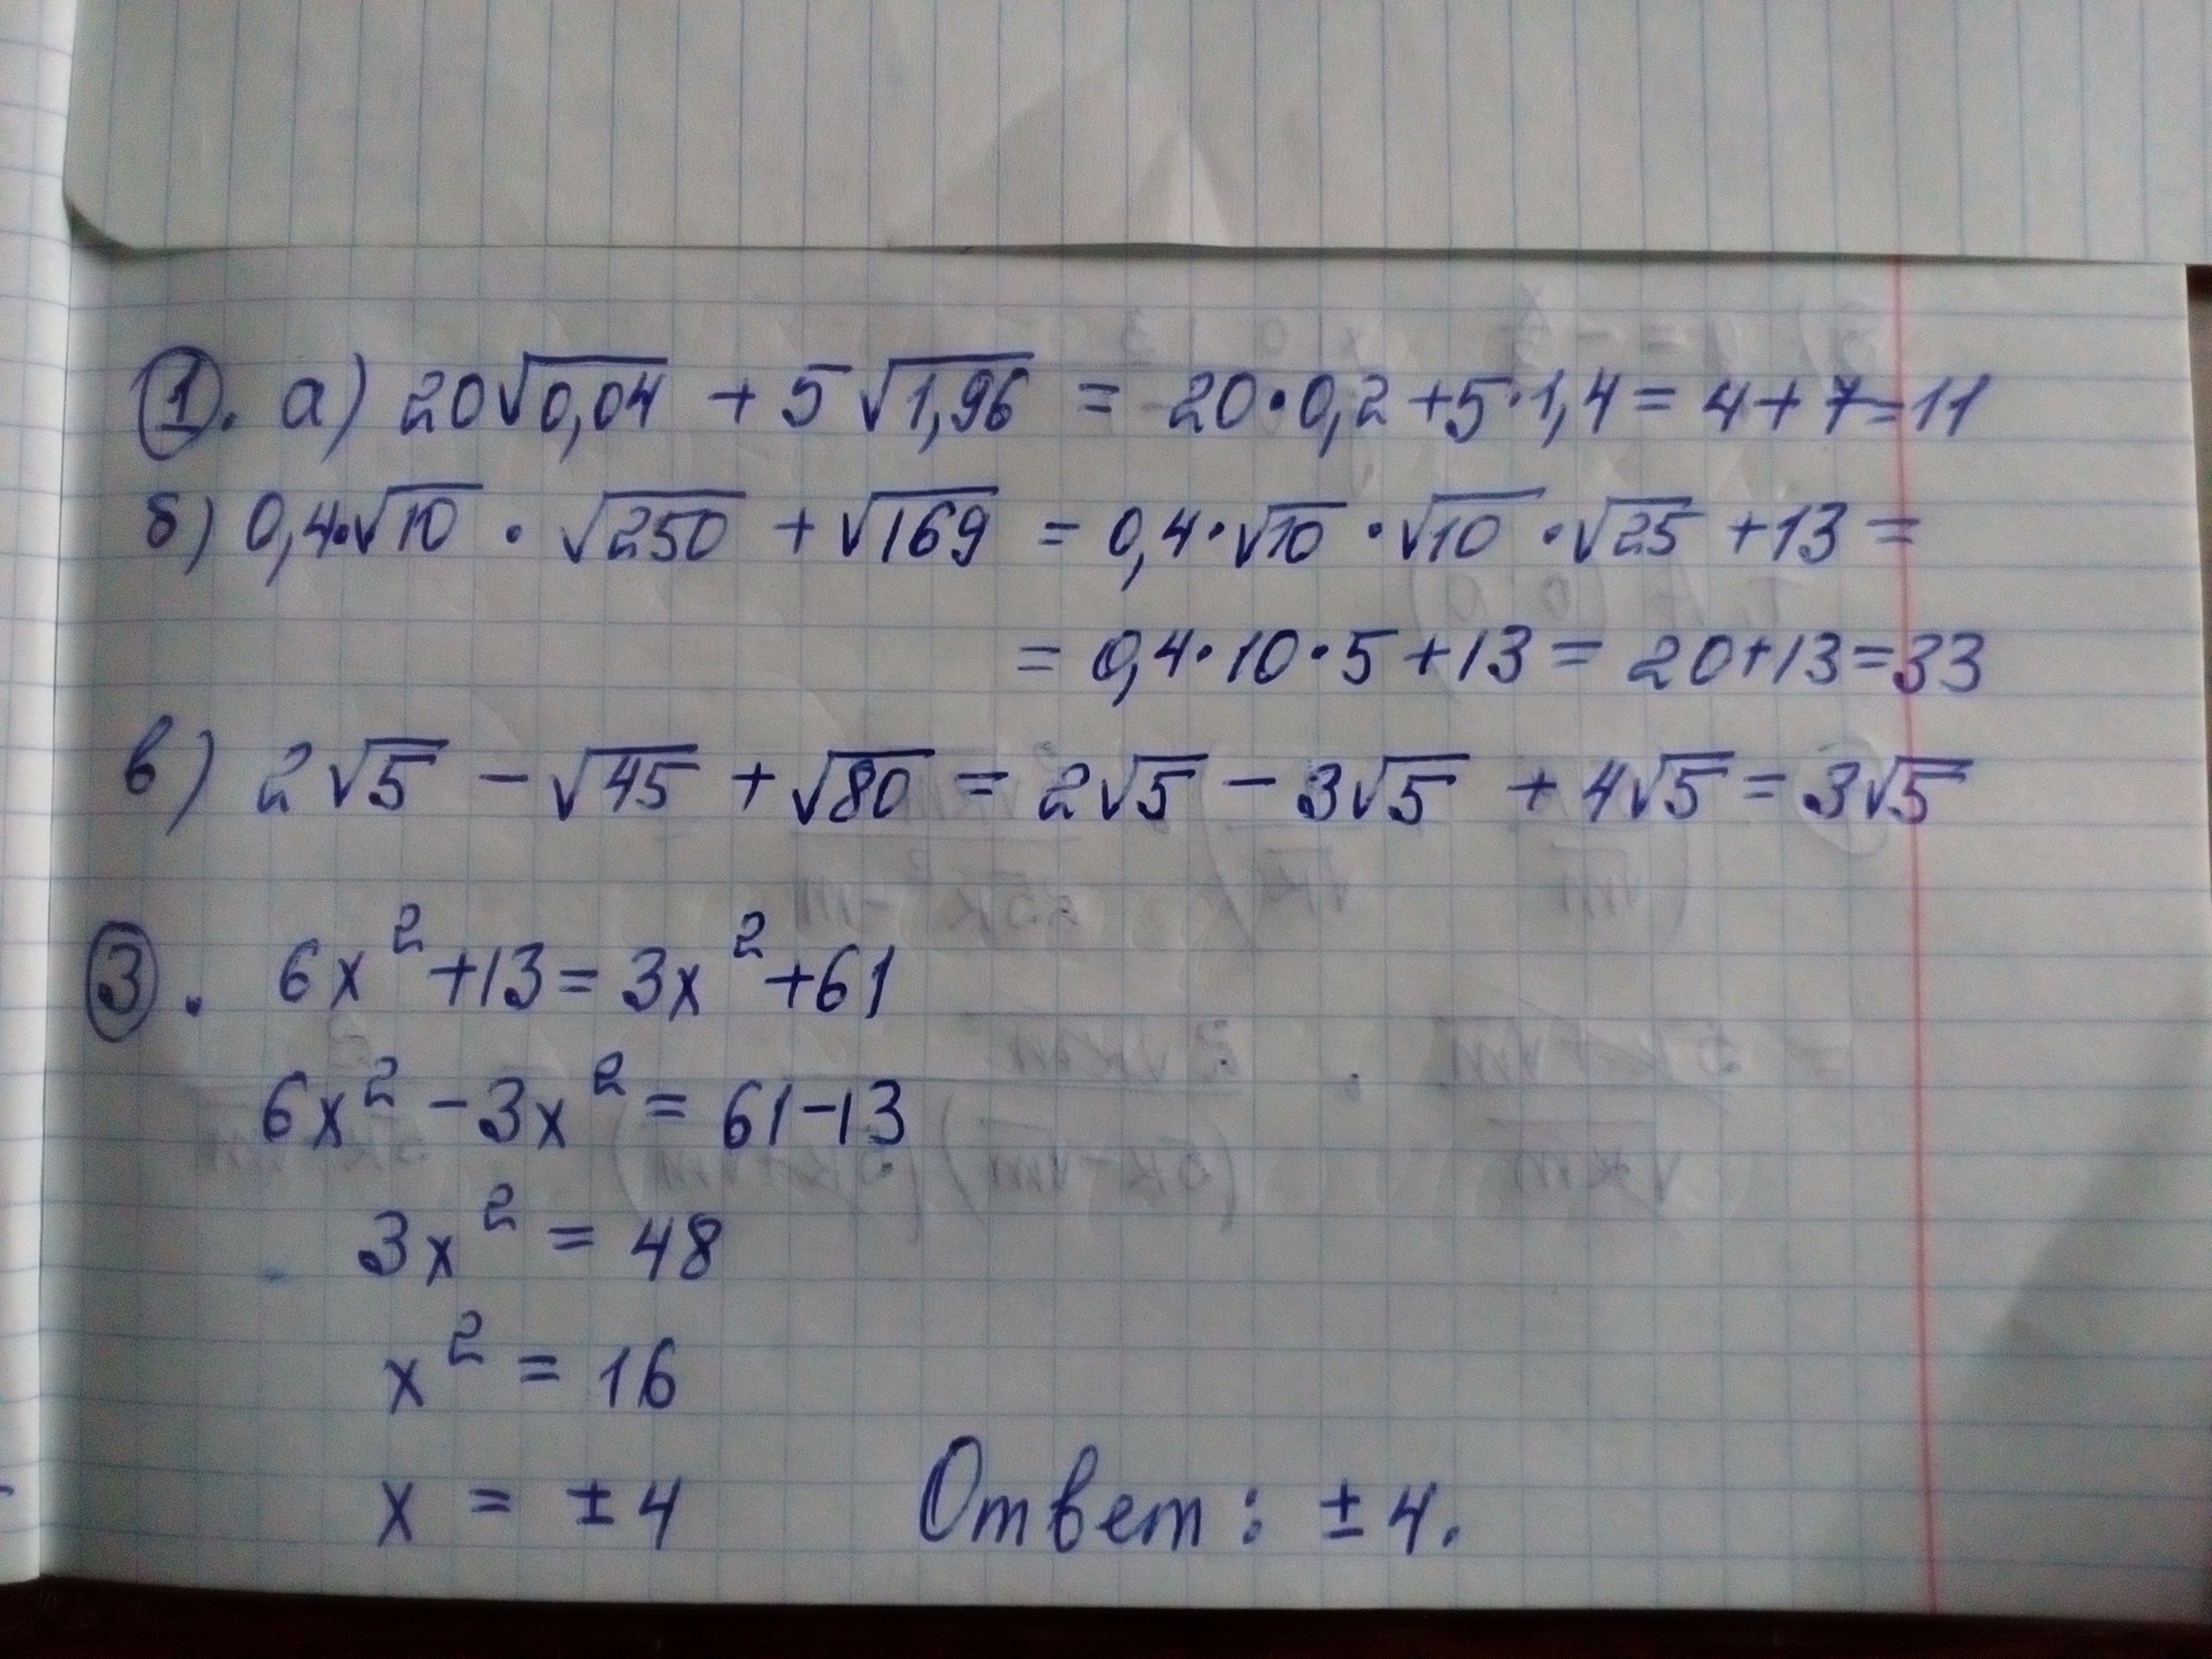 1. а) 20√0,04 + 5√1,96 = 20·0,2+5·1,4 = 4+7=11
б) 0,4·√10 · √250 + √169 = 0,4·√10 ·√10 ·√25 +13 =
= 0,4·10·5+13= 20+13=33
в) 2√5 - √45 + √80 = 2√5 - 3√5 + 4√5 = 3√5
3. 6x² +13= 3x² +61
6x² - 3x² = 61-13
3x² = 48
x² = 16
x = ±4 Ответ: ±4.